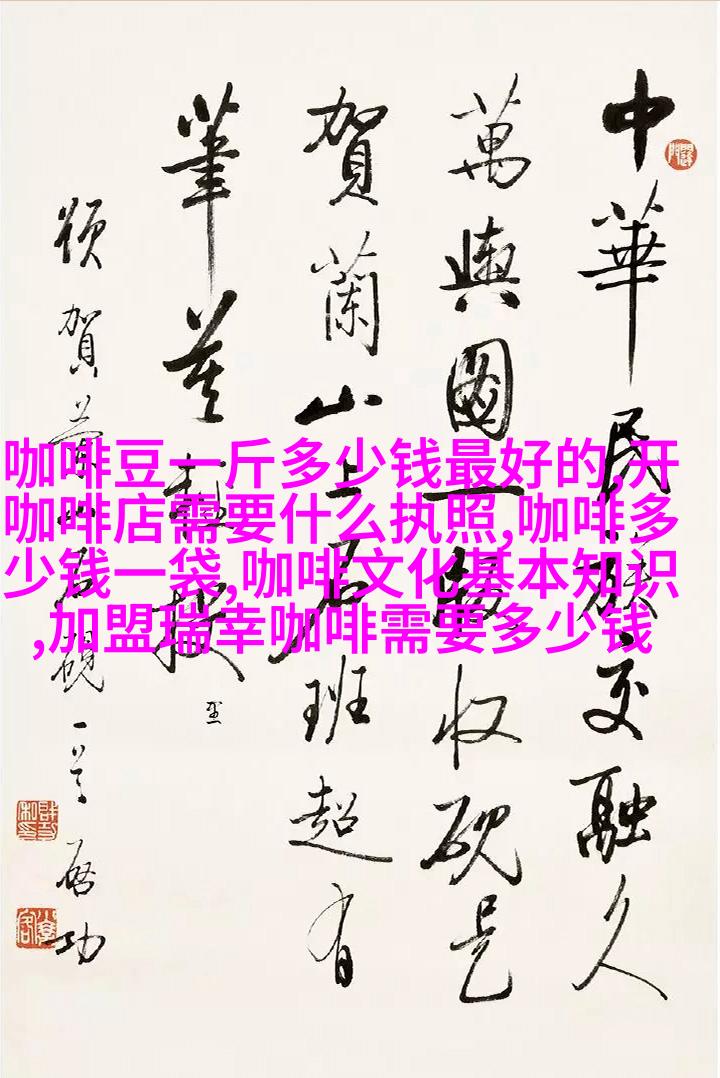 咖啡豆一斤多少钱最好的,开
咖啡店需要什么执照,咖啡多
少钱一袋,咖啡文化基本知识
,加盟瑞幸咖啡需要多少钱
中華民族交融久
萬輿圖一收硯是
賀蘭山上石班超有
筆莫輕投 里
頌賀蘭山石硯一首 啟功